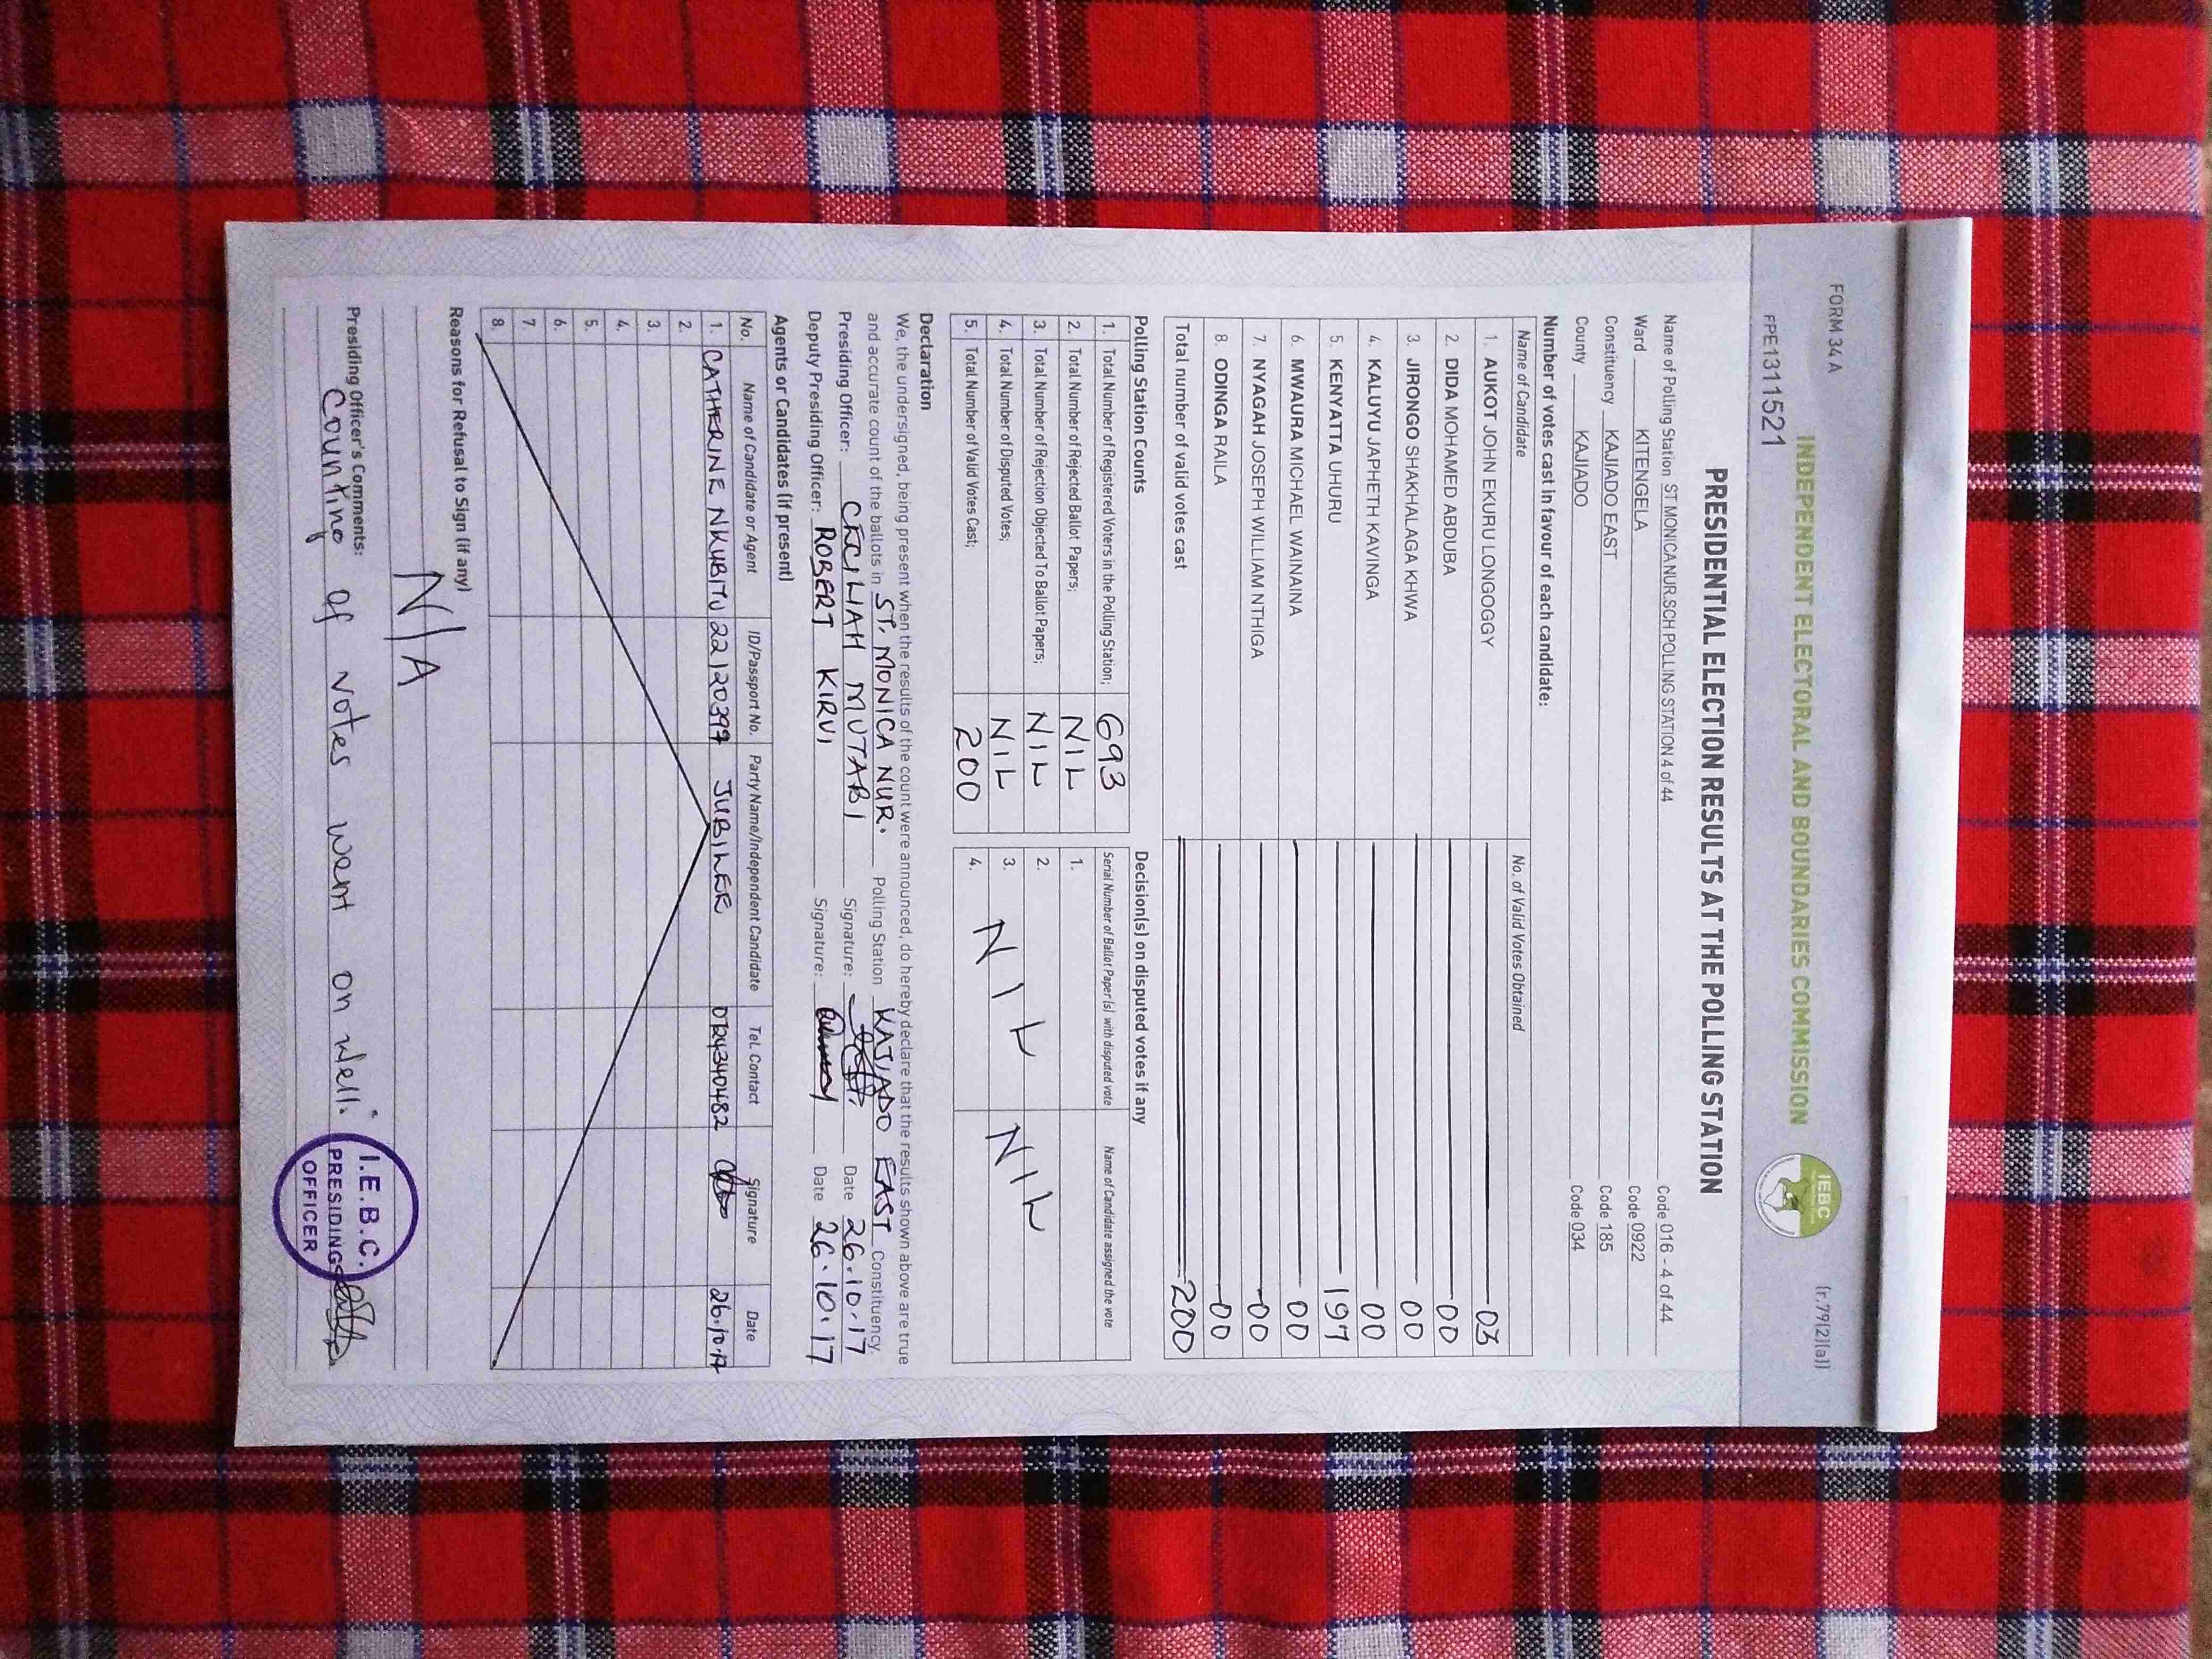 FORM 34A (r.79(2)(a))
INDEPENDENT ELECTORAL AND BOUNDARIES COMMISSION
IEBC
FPE1311521
PRESIDENTIAL ELECTION RESULTS AT THE POLLING STATION
Name of Polling Station ST MONICA NUR.SCH POLLING STATION 4 of 44 Code 016 - 4 of 44
Ward KITENGELA Code 0922
Constituency KAJIADO EAST Code 185
County KAJIADO Code 034
Number of votes cast in favour of each candidate:
Name of Candidate No. of Valid Votes Obtained
1. AUKOT JOHN EKURU LONGOGGY 03
2. DIDA MOHAMED ABDUBA 00
3. JIRONGO SHAKHALAGA KHWA 00
4. KALUYU JAPHETH KAVINGA 00
5. KENYATTA UHURU 197
6. MWAURA MICHAEL WAINAINA 00
7. NYAGAH JOSEPH WILLIAM NTHIGA 00
8. ODINGA RAILA 00
Total number of valid votes cast 200
Polling Station Counts Decision(s) on disputed votes if any
1. Total Number of Registered Voters in the Polling Station; 693 Serial Number of Ballot Paper (s) with disputed vote Name of Candidate assigned the vote
2. Total Number of Rejected Ballot Papers; NIL 1.
3. Total Number of Rejection Objected To Ballot Papers; NIL 2.
4. Total Number of Disputed Votes; NIL 3. NIL NIL
5. Total Number of Valid Votes Cast; 200 4.
Declaration
We, the undersigned, being present when the results of the count were announced, do hereby declare that the results shown above are true
and accurate count of the ballots in ST. MONICA NUR. Polling Station KAJIADO EAST Constituency.
Presiding Officer: CECILIAH MUTABI Signature: Date 26.10.17
Deputy Presiding Officer: ROBERT KIRUI Signature: Date 26.10.17
Agents or Candidates (if present)
No. Name of Candidate or Agent ID/Passport No. Party Name/Independent Candidate Tel. Contact Signature Date
1. CATHERINE NKUBITU 22120397 JUBILEE 0724340482 26.10.17
2.
3.
4.
5.
6.
7.
8.
Reasons for Refusal to Sign (if any)
N/A
Presiding Officer's Comments:
Counting of votes went on well.
I.E.B.C.
PRESIDING
OFFICER